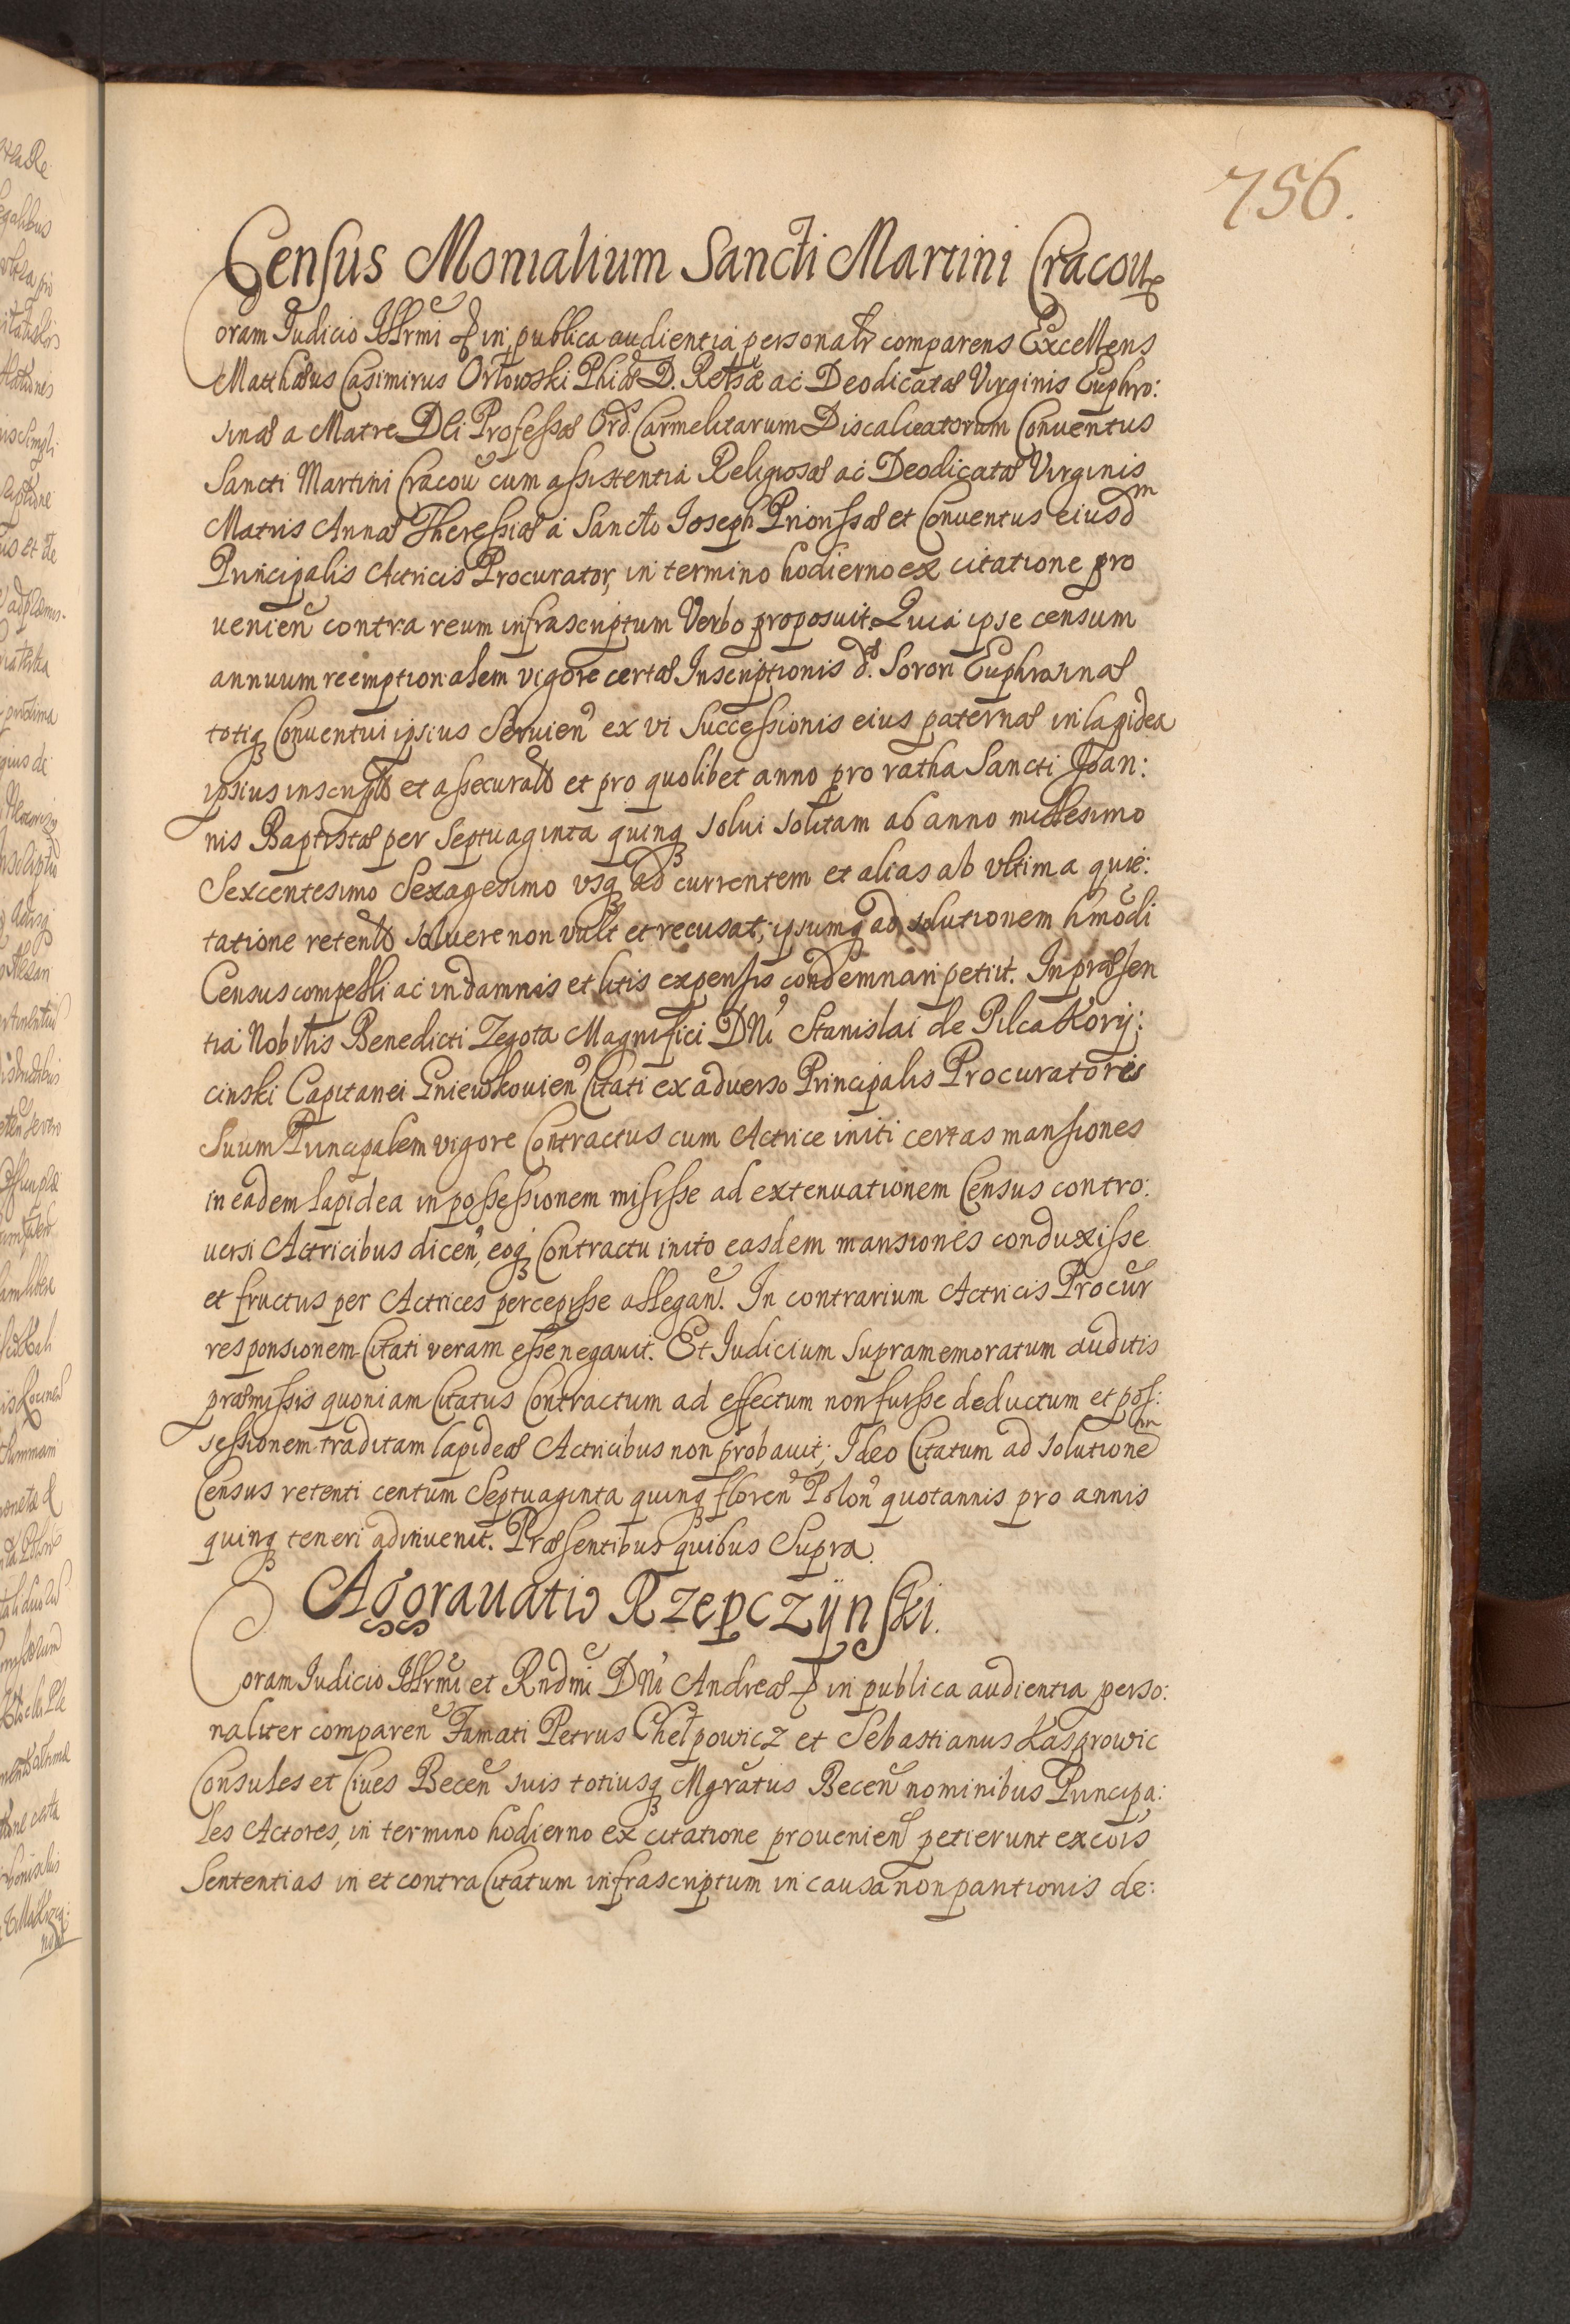 756.
Census Monialium Sancti Martini Cracou
Coram Judicio Illrmi & in publica audientia personalr comparens Excellens
Matthæus Casimirus Orłowski Phiæ D. Relsæ ac Deodicatæ Virginis Euphro:
sinæ a Matre Dei Professæ Ord. Carmelitarum Discalceatorum Conuentus
Sancti Martini Cracou cum assistentia Religiosæ ac Deodicatæ Virginis
Matris Annæ Theressiæ a Sancto Joseph Priorissæ et Conuentus eiusdm
Principalis Actricis Procurator, in termino hodierno ex citatione pro
uenien contra reum infrascriptum Verbo proposuit. Quia ipse censum
annuum reemptionalem vigore certæ Inscriptionis dæ. Sorori Euphrosinæ
totiq Conuentui ipsius Seruien ex vi Successionis eius paternæ in lapidea
ipsius inscripto et assecurato et pro quolibet anno pro ratha Sancti Joan:
nis Baptistæ per Septuaginta quinq solui solitam ab anno millesimo
Sexcentesimo Sexagesimo vsq ad currentem et alias ab vltima quie:
tatione retento soluere non vult et recusat, ipsumq ad solutionem hmodi
Census compelli ac in damnis et litis expensis condemnari petiit. In præsen
tia Nobilis Benedicti Zegota Magnifici DNi Stanislai de Pilca Kory:
cinski Capitanei Gniewkouien Citati ex aduerso Principalis Procuratoris
Suum Principalem vigore Contractus cum Actrice initi certas mansiones
in eadem Lapidea in possessionem misisse ad extenuationem Census contro:
uersi Actricibus dicen, eoq Contractu inito easdem mansiones conduxisse
et fructus per Actrices percepisse allegan. In contrarium Actricis Procur
responsionem Citati veram esse negauit. Et Judicium Supramemoratum auditis
præmissis quoniam Citatus Contractum ad effectum non fuisse deductum et pos:
sessionem traditam lapideæ Actricibus non probauit; Ideo Citatum ad solutionem
Census retenti centum Septuaginta quinq floren Polon quotannis pro annis
quinq teneri adinuenit. Præsentibus quibus Supra.
Aggrauatio Rzepczÿnski.
Coram Judicio Illrmi et Rndmi DNi Andreæ & in publica audientia perso:
naliter comparen Famati Petrus Chełpowicz et Sebastianus Kasprowic
Consules et Ciues Becen suis totiusq Mgratus Becen nominibus Principa:
les Actores, in termino hodierno ex citatione prouenien petierunt excois
Sententias in et contra Citatum infrascriptum in causa non paritionis de: